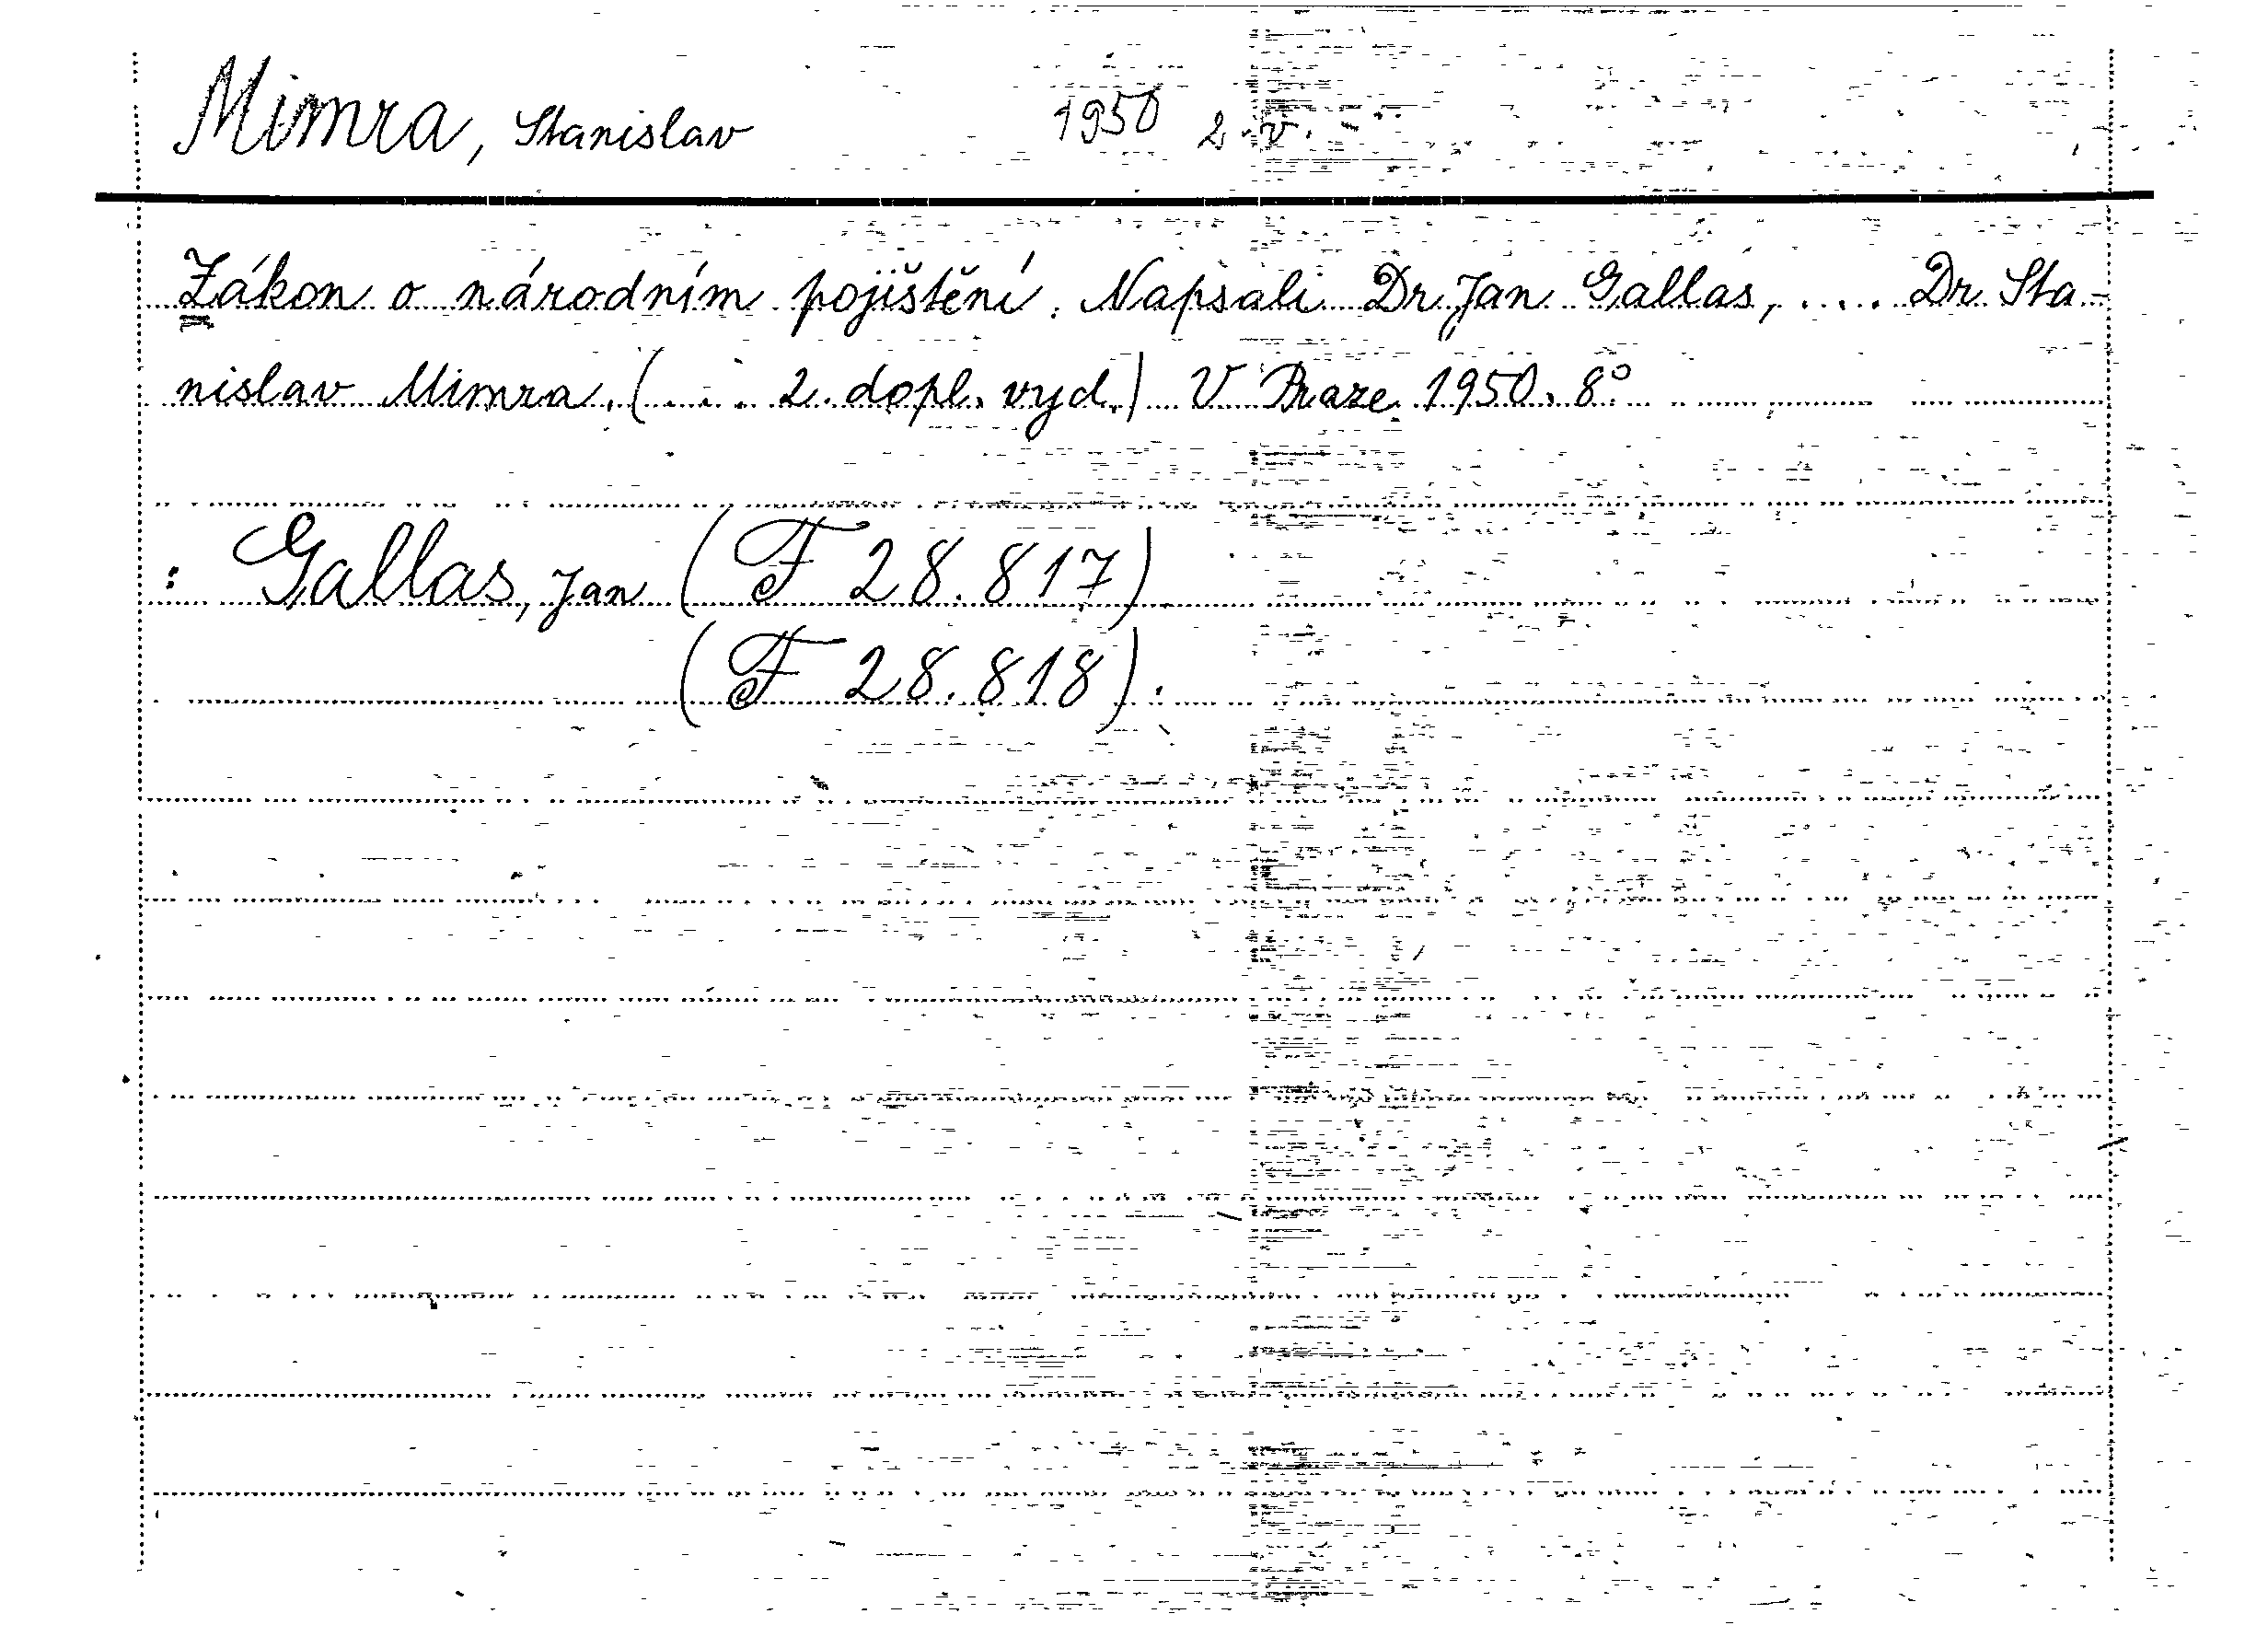 Mimra, Stanislav 1950 2.v.
Zákon o národním pojištění. Napsali Dr. Jan Gallas, .... Dr. Sta-
nislav Mimra. (... 2. dopl. vyd.) V Praze 1950. 8°
: Gallas, Jan (F 28.817)
(F 28.818).